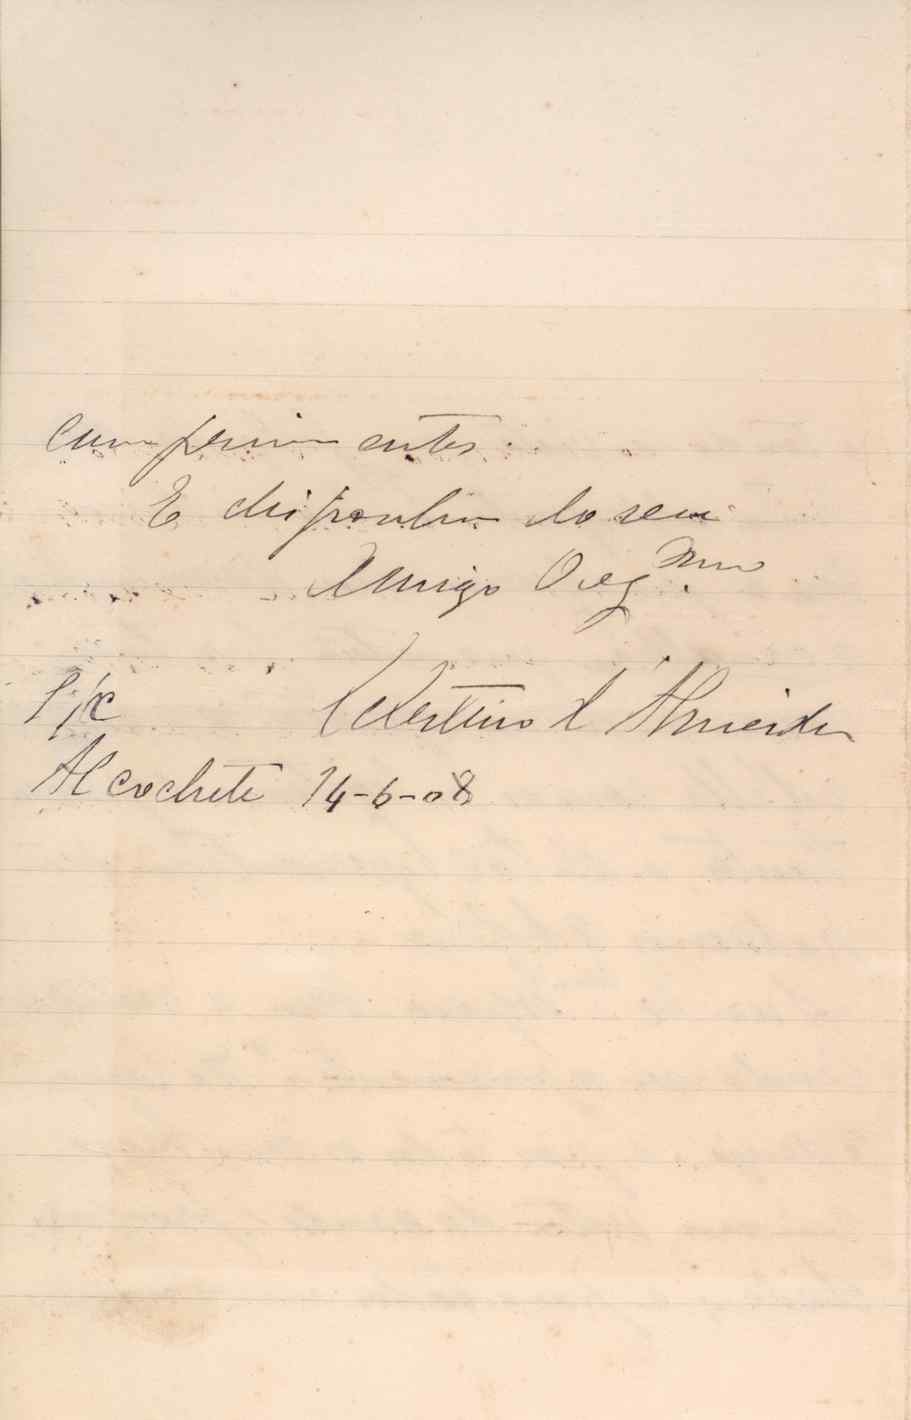 cumprimentos.
E disponha do seu
Amigo Obrg.mo
S/c Celestino d'Almeida
Alcochete 14-6-08